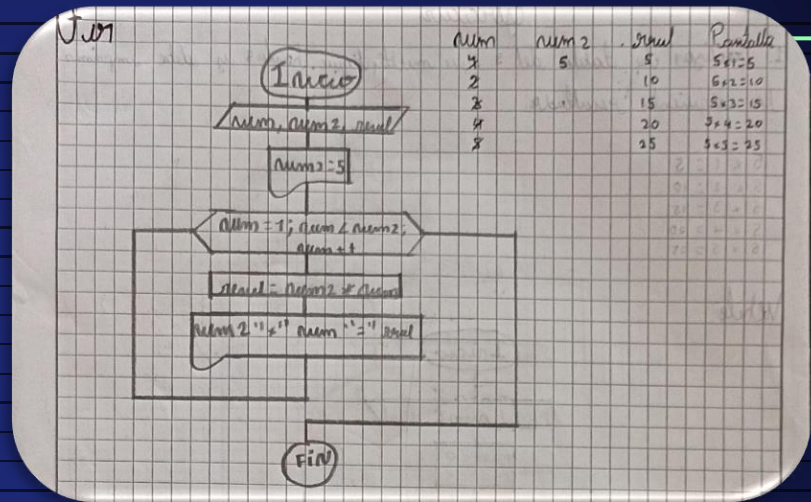 For
Inicio
num, num2, resul
num2=5
num=1; num<num2;
num++
resul=num2*num
num2 "*" num "=" resul
FIN
num num2 resul Pantalla
1 5 5 5*1=5
2 10 5*2=10
3 15 5*3=15
4 20 5*4=20
5 25 5*5=25